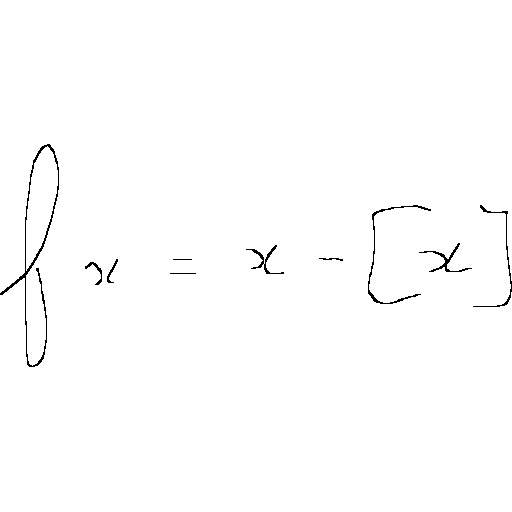 f x = x - [x]